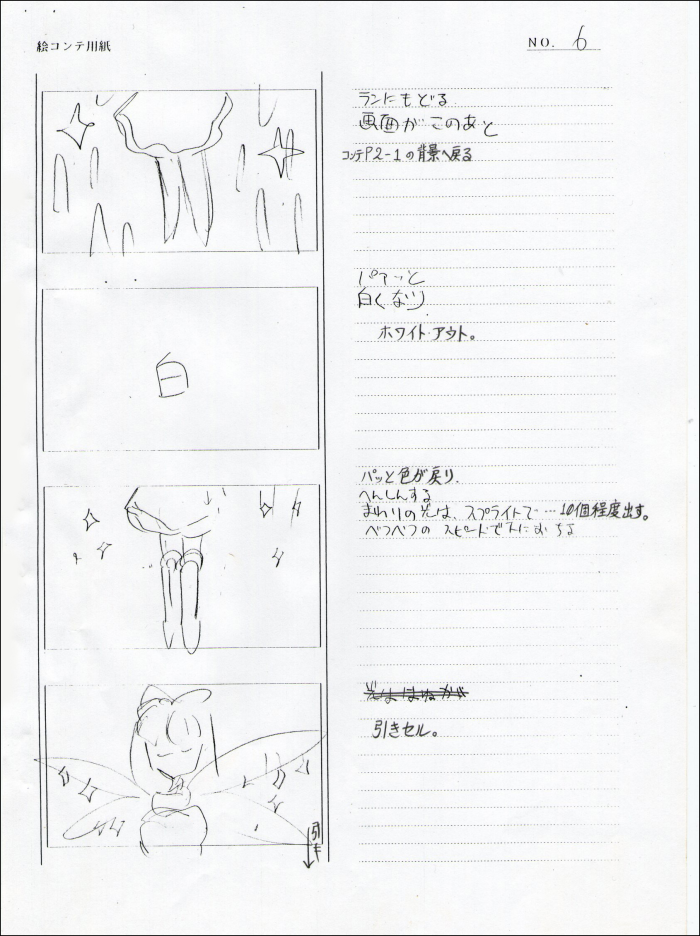 絵コンテ用紙
NO. 6
ランにもどる
画面が このあと
コンテP2-1の背景へ戻る
パァッと
白くなり
ホワイト・アウト。
白
パッと色が戻り.
へんしんする
まわりの光は、スプライトで…10個程度出す。
べつべつの スピードで下におちる
光ははねがが
引きセル。
引キ